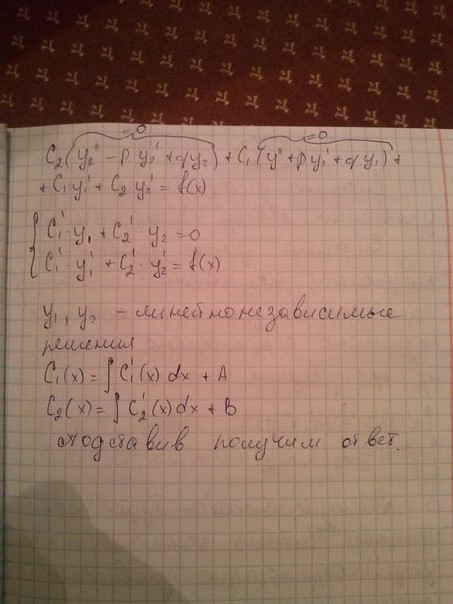 =0 =0
C₂(y₂'' - p y₂' + q y₂) + C₁(y'' + p y₁' + q y₁) +
+ C₁ y₁' + C₂ y₂' = f(x)
{ C₁' · y₁ + C₂' · y₂ = 0
C₁' · y₁' + C₂' · y₂' = f(x)
y₁, y₂ - линейно независимые
решения
C₁(x) = ∫ C₁'(x) dx + A
C₂(x) = ∫ C₂'(x) dx + B
подставив получим ответ.